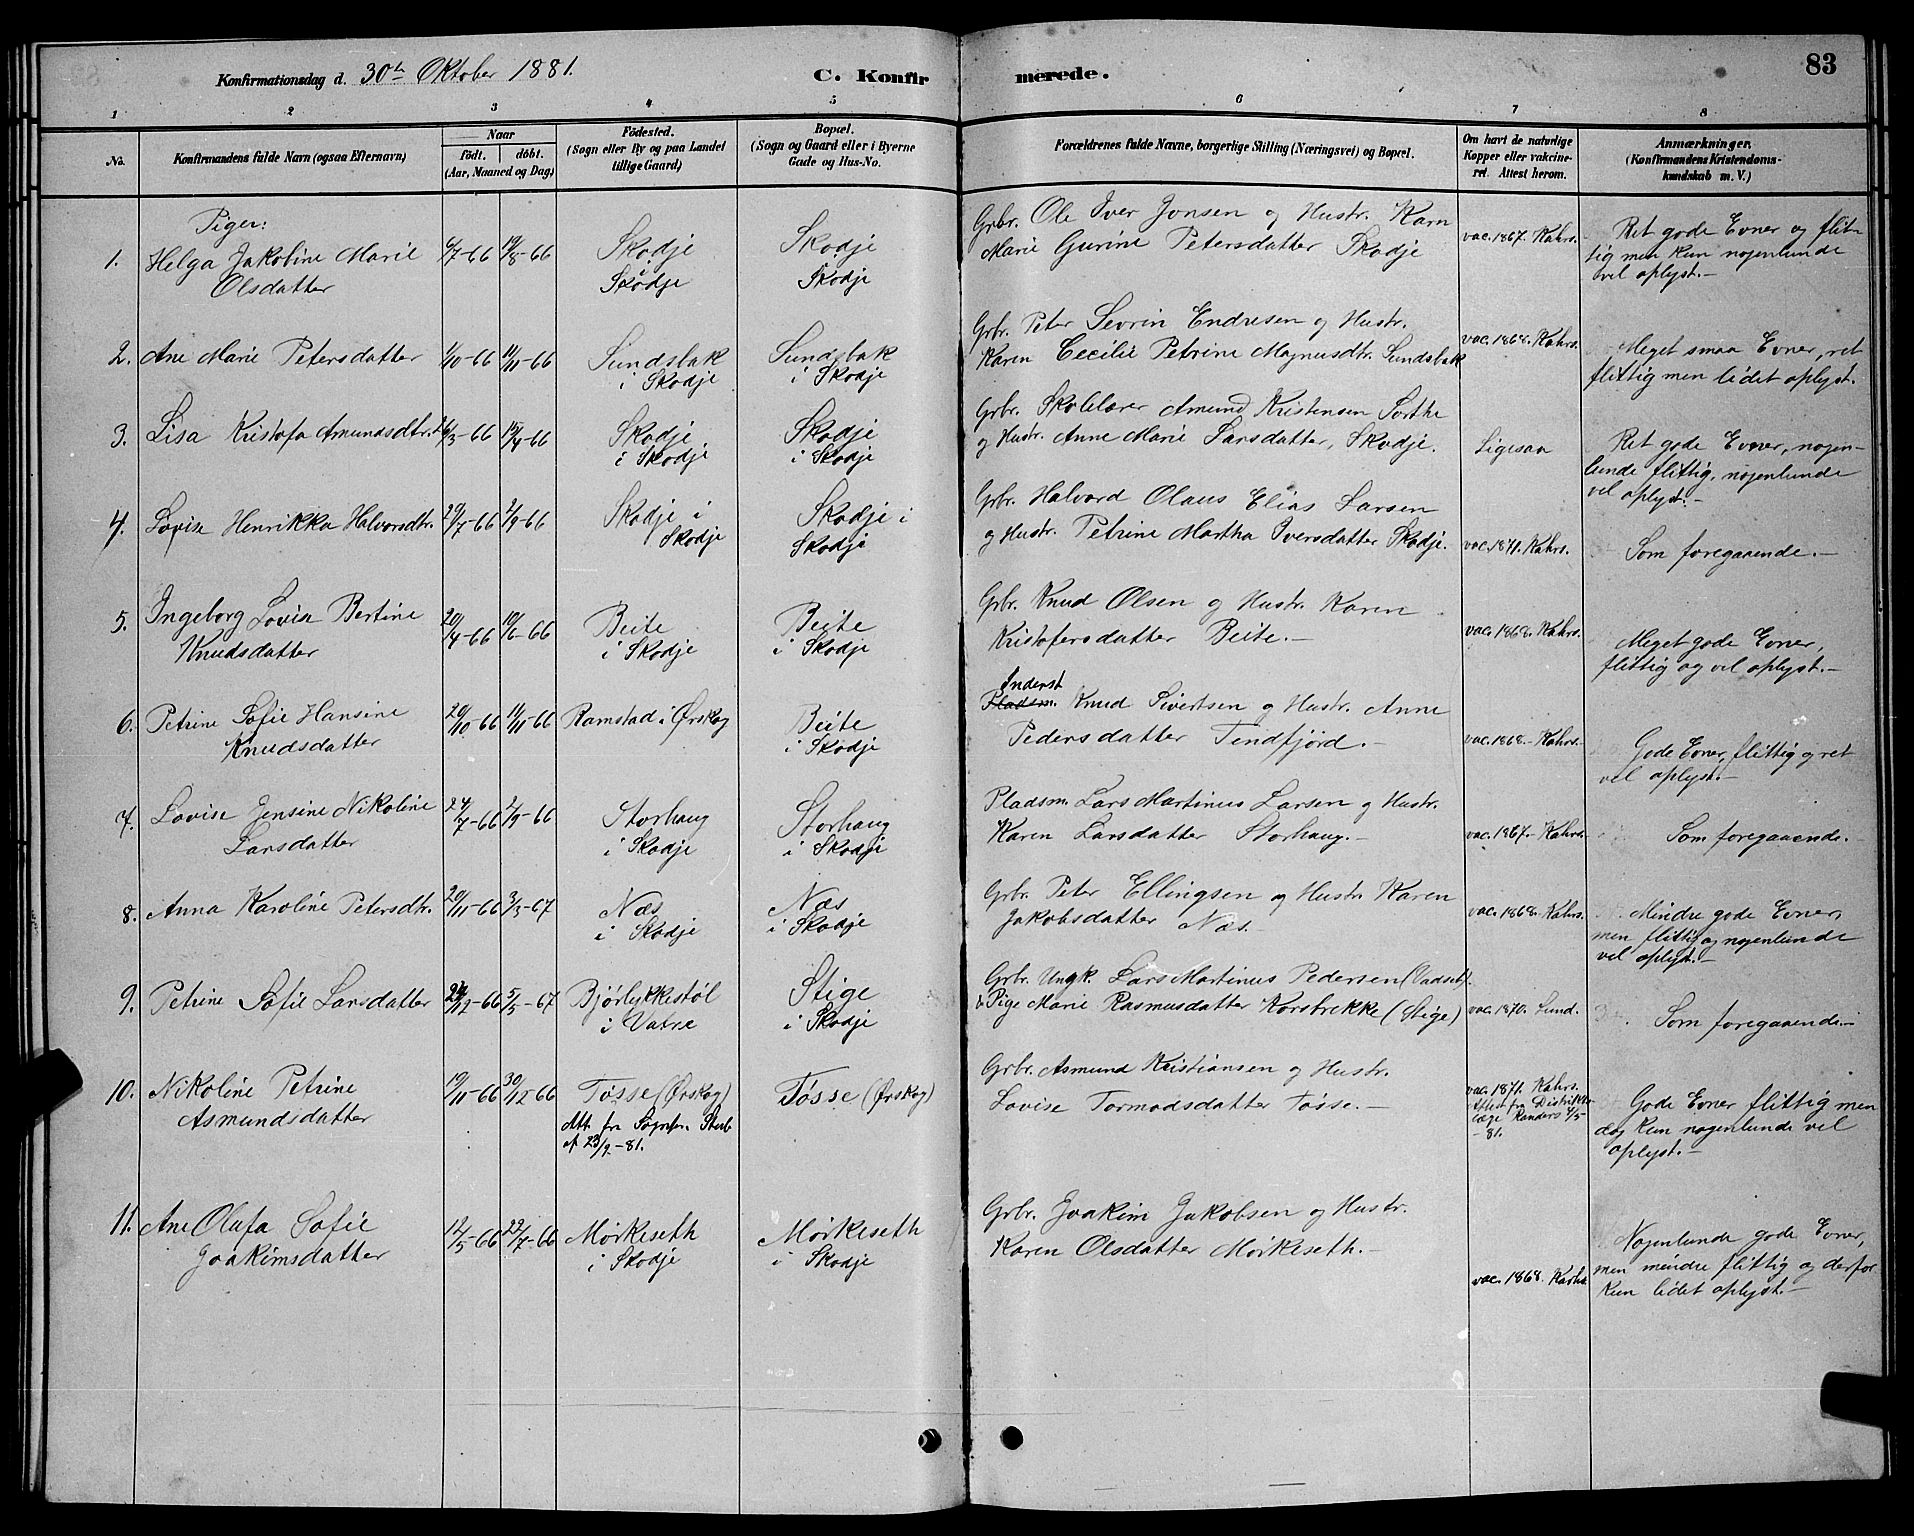 Konfirmationsdag d. 30te Oktober 1881.
C. Konfirmerede.
83
1 2 3 4 5 6 7 8
No.
Konfirmandens fulde Navn (ogsaa Efternavn)
Naar
födt. döbt.
(Aar, Maaned og Dag)
Födested.
(Sogn eller By og paa Landet
tillige Gaard)
Bopæl.
(Sogn og Gaard eller i Byerne
Gade og Hus-No.
Forældrenes fulde Navne, borgerlige Stilling (Næringsvei) og Bopæl.
Om havt de naturlige
Kopper eller vakcine-
ret. Attest herom.
Anmærkninger.
(Konfirmandens Kristendoms-
kundskab m. V.)
Piger:
1. Helga Jakobine Marie
Olsdatter
6/7-66 19/8-66
Skodje
Skodje
Skodje
Skodje
Grbr. Ole Iver Jonsen og Hustr. Karn
Marie Gurine Petersdatter Skodje
vac. 1867. Kahrs.
Ret gode Evner og flit-
tig men kun nogenlunde
vel oplyst.-
2. Ane Marie Petersdatter
1/10-66 11/11-66
Sundsbak
i Skodje
Sundsbak
i Skodje
Grbr. Peter Sevrin Endresen og Hustr.
Karen Cecilie Petrine Magnusdtr. Sundsbak
vac. 1868. Kahrs.
Meget smaa Evner, ret
flittig men lidet oplyst.
3. Lisa Kristofa Amundsdtr.
/3-66 15/4-66
Skodje
i Skodje
Skodje
i Skodje
Grbr. Skolelærer Amund Kristensen Sorthe
og Hustr. Anne Marie Larsdatter, Skodje.
Ligesaa
Ret gode Evner, nogen-
lunde flittig, nogenlunde
vel oplyst.-
4. Lovise Henrikka Halvorsdtr.
29/7-66 2/9-66
Skodje i
Skodje
Skodje i
Skodje
Grbr. Halvard Olaus Elias Larsen
og Hustr. Petrine Martha Iversdatter Skodje.
vac. 1871. Kahrs.
Som foregaaende.-
5. Ingeborg Lovise Bertine
Knudsdatter
20/4-66 10/6-66
Beite
i Skodje
Beite
i Skodje
Grbr. Knud Olsen og Hustr. Karen
Kristofersdatter Beite.-
vac. 1868. Kahrs.
Meget gode Evner,
flittig og vel oplyst.-
6. Petrine Sofie Hansine
Knudsdatter
20/10-66 11/11-66
Ramstad i Ørskog
Beite
i Skodje
Inderst
Pladsm. Knud Sivertsen og Hustr. Anne
Pedersdatter Tendfjord.-
vac. 1868.- Kahrs.
Gode Evner, flittig og ret
vel oplyst.-
7. Lovise Jensine Nikoline
Larsdatter
24/7-66 2/9-66
Storhaug
i Skodje
Storhaug
i Skodje
Pladsm. Lars Martinus Larsen og Hustr.
Karen Larsdatter Storhaug.-
vac. 1867.- Kahrs.
Som foregaaende.-
8. Anna Karoline Petersdtr.
20/11-66 3/3-67
Næs
i Skodje
Næs
i Skodje
Grbr. Peter Ellingsen og Hustr. Karen
Jakobsdatter Næs.-
vac. 1868. Kahrs.
Mindre gode Evner,
men flittig og nogenlunde
vel oplyst.-
9. Petrine Sofie Larsdatter
/12-66 5/5-67
Bjørlykkestøl
i Vatne
Stige
i Skodje
Grbr. Ungk. Lars Martinus Pedersen (Vadset).
& Pige Marie Rasmusdatter Korsbrekke (Stige)
vac. 1870. Lund.
Som foregaaende.-
10. Nikoline Petrine
Asmundsdatter
19/11-66 30/12-66
Tøsse (Ørskog)
Att. fra Sognepr. Stub
af 23/9-81.
Tøsse (Ørskog)
Grbr. Asmund Kristiansen og Hustr.
Lovise Tormodsdatter Tøsse.-
vac. 1871. Kahrs.
Attest fra Distrikts-
læge Randers 4/5
-81.
Gode Evner flittig men
dog kun nogenlunde vel
oplyst.-
11. Ane Olufa Sofie
Joakimsdatter
12/5-66 22/7-66
Mørkeseth
i Skodje
Mørkeseth
i Skodje
Grbr. Joakim Jakobsen og Hustr.
Karen Olsdatter Mørkeseth.-
vac. 1868. Karhs.
Nogenlunde gode Evner,
men mindre flittig og derfor
kun lidet oplyst.-